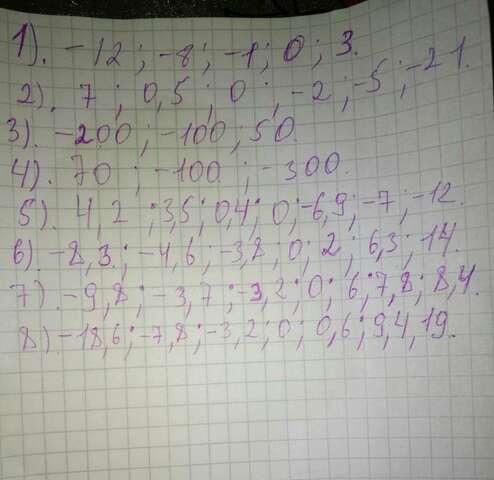 1). -12; -8; -1; 0; 3.
2). 7; 0,5; 0; -2; -5; -21.
3). -200; -100; 50.
4). 70; -100; -300.
5). 4,2; 3,5; 0,4; 0; -6,9; -7; -12.
6). -8,3; -4,6; -3,8; 0; 2; 6,3; 14.
7). -9,8; -3,7; -3,2; 0; 6; 7,8; 8,4.
8) -18,6; -7,8; -3,2; 0; 0,6; 9,4, 19.